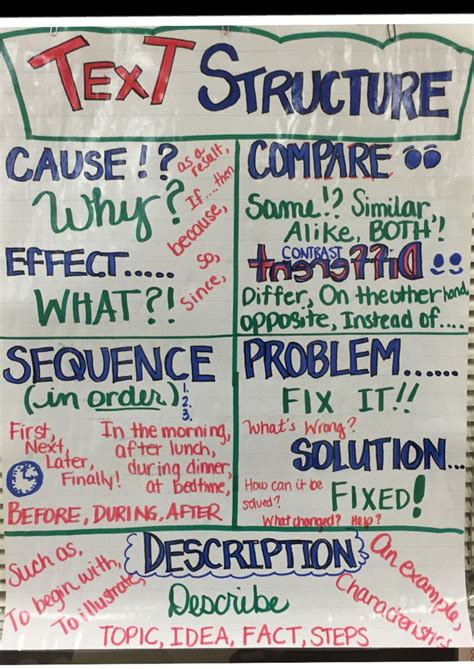 TEXT STRUCTURE
CAUSE!?
Why?
as a result,
If....then
because,
so,
since,
EFFECT.....
WHAT?!
COMPARE
Same!? Similar,
Alike, BOTH!
CONTRAST
Different
Differ, On the other hand,
opposite, Instead of....
SEQUENCE
(in order)
1.
2.
3.
First,
Next,
Later,
Finally!
In the morning,
after lunch,
during dinner,
at bedtime,
BEFORE, DURING, AFTER
PROBLEM......
FIX IT!!
What's Wrong?
SOLUTION...
How can it be
solved?
FIXED!
What changed? Help?
DESCRIPTION
Such as,
To begin with,
To illustrate,
Describe
An example,
Characteristics
TOPIC, IDEA, FACT, STEPS